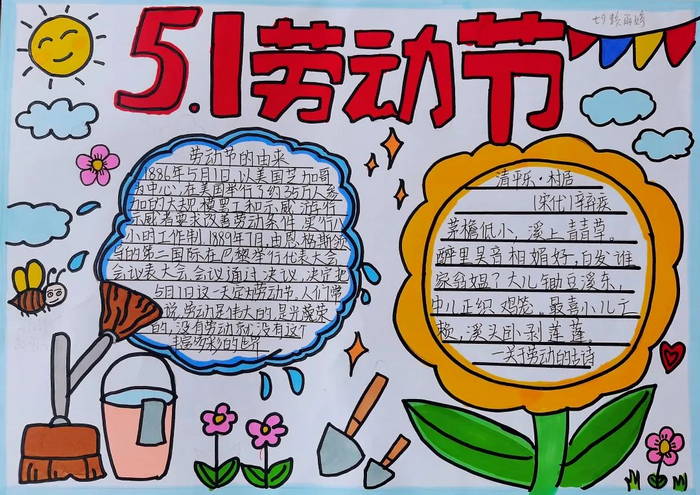 5.1劳动节
劳动节的由来
1886年5月1日,以美国芝加哥
为中心,在美国举行了约35万人参
加的大规模罢工和示威游行
示威者要求改善劳动条件,实行八
小时工作制,1889年7月,由恩格斯领
导的第二国际在巴黎举行代表大会
会议表大会会议通过决议,决定把
5月1日这一天定为劳动节,人们常
说,劳动是伟大的,是光荣
的,没有劳动,就没有这个
丰富多彩的世界
清平乐·村居
(宋代)辛弃疾
茅檐低小,溪上青青草。
醉里吴音相媚好,白发谁
家翁媪?大儿锄豆溪东,
中儿正织鸡笼。最喜小儿亡
赖,溪头卧剥莲蓬。
—关于劳动的古诗